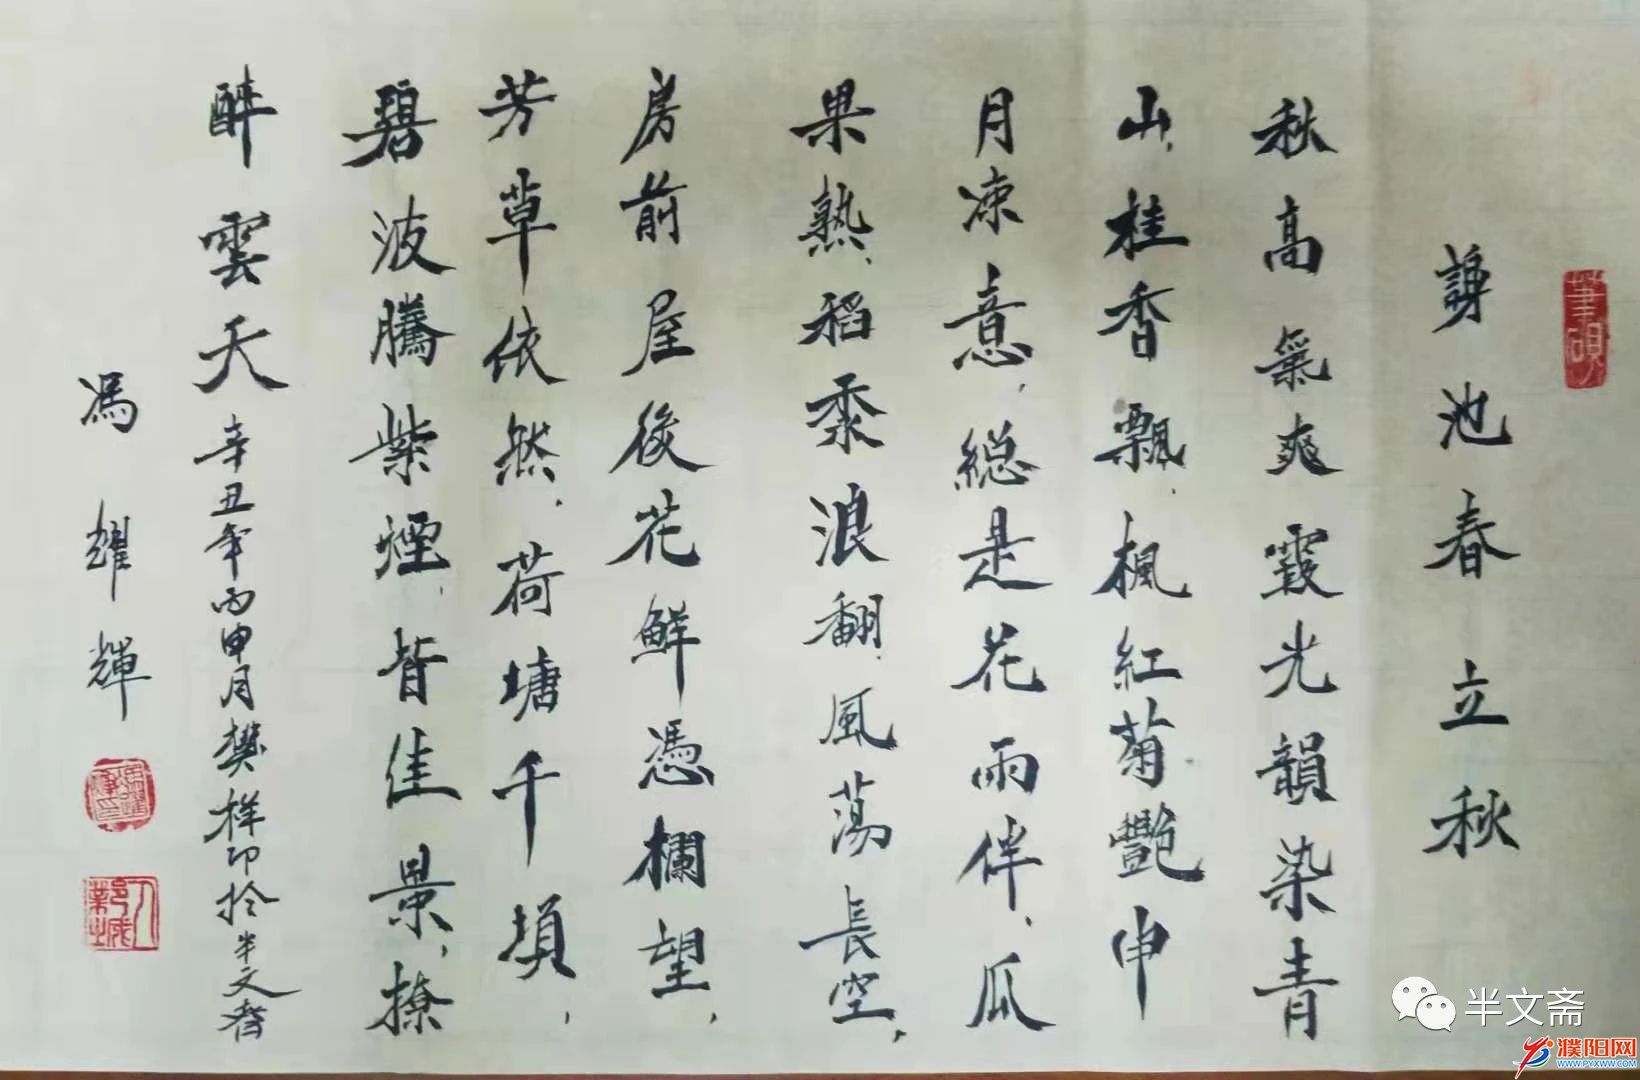 筆硯
謝池春立秋
秋高氣爽霞光韻染青
山,桂香飄,楓紅菊艷申
月凉意,総是花雨伴,瓜
果熟,稻黍浪翻,風蕩長空,
房前屋後花鮮憑欄望,
芳草依然,荷塘千頃,
碧波騰紫煙,皆佳景,撩
醉雲天 辛丑年丙申月樊祥印於半文齋
馮耀輝
半文斋
濮阳网
WWW.PYXWW.COM